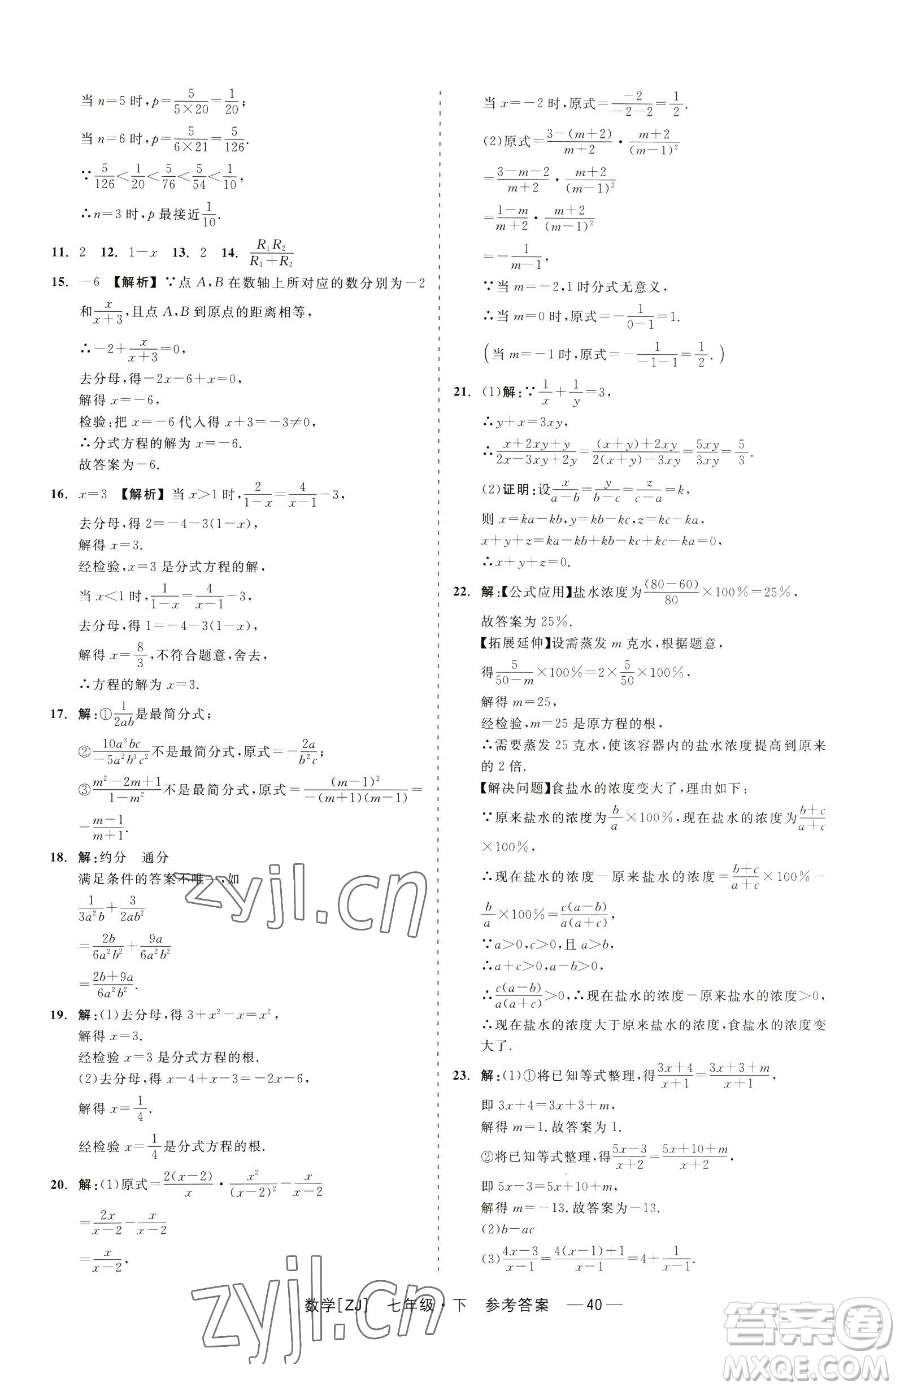 当n=5时,p=5/(5×20)=1/20;
当n=6时,p=5/(6×21)=5/126.
∵5/126<1/20<5/76<5/54<1/10,
∴n=3时,p最接近1/10.
11. 2 12. 1-x 13. 2 14. R₁R₂/(R₁+R₂)
15. -6 【解析】∵点A,B在数轴上所对应的数分别为-2
和x/(x+3),且点A,B到原点的距离相等,
∴-2+x/(x+3)=0,
去分母,得-2x-6+x=0,
解得x=-6,
检验:把x=-6代入得x+3=-3≠0,
∴分式方程的解为x=-6.
故答案为-6.
16. x=3 【解析】当x>1时,2/(1-x)=4/(x-1)-3,
去分母,得2=-4-3(1-x),
解得x=3.
经检验,x=3是分式方程的解,
当x<1时,1/(1-x)=4/(x-1)-3,
去分母,得1=-4-3(1-x),
解得x=8/3,不符合题意,舍去,
∴方程的解为x=3.
17. 解:①1/(2ab)是最简分式;
②10a³bc/(-5a²b³c²)不是最简分式,原式=-2a/(b²c);
③(m²-2m+1)/(1-m²)不是最简分式,原式=(m-1)²/(-(m+1)(m-1))=
-(m-1)/(m+1).
18. 解:约分 通分
满足条件的答案不唯一,如
1/(3a²b)+3/(2ab²)
=2b/(6a²b²)+9a/(6a²b²)
=(2b+9a)/(6a²b²).
19. 解:(1)去分母,得3+x²-x=x²,
解得x=3.
经检验x=3是分式方程的根.
(2)去分母,得2-2x-1=-6+6x+4x+4,
解得x=1/4.
经检验x=1/4是分式方程的根.
20. 解:(1)原式=2(x-2)/x·x²/(x-2)²-x/(x-2)
=2x/(x-2)-x/(x-2)
=x/(x-2),
当x=-2时,原式=-2/(-2-2)=1/2.
(2)原式=(3-(m+2))/(m+2)·(m+2)/(m-1)²
=(3-m-2)/(m+2)·(m+2)/(m-1)²
=(1-m)/(m+2)·(m+2)/(m-1)²
=-1/(m-1).
∵当m=-2,1时分式无意义,
∴当m=0时,原式=-1/(0-1)=1.
(当m=-1时,原式=-1/(-1-1)=1/2.)
21. (1)解:∵1/x+1/y=3,
∴y+x=3xy,
∴(x+2xy+y)/(2x-3xy+2y)=((x+y)+2xy)/(2(x+y)-3xy)=5xy/3xy=5/3.
(2)证明:设x/(a-b)=y/(b-c)=z/(c-a)=k,
则x=ka-kb,y=kb-kc,z=kc-ka,
x+y+z=ka-kb+kb-kc+kc-ka=0,
∴x+y+z=0.
22. 解:【公式应用】盐水浓度为(80-60)/80×100%=25%,
故答案为25%.
【拓展延伸】设需蒸发m克水,根据题意,
得5/(50-m)×100%=2×5/50×100%,
解得m=25,
经检验,m=25是原方程的根,
∴需要蒸发25克水,使该容器内的盐水浓度提高到原来
的2倍.
【解决问题】食盐水的浓度变大了,理由如下:
∵原来盐水的浓度为b/a×100%,现在盐水的浓度为(b+c)/(a+c)
×100%,
∴现在盐水的浓度-原来盐水的浓度=(b+c)/(a+c)×100%-
b/a×100%=c(a-b)/(a(a+c)),
∵a>0,c>0,且a>b,
∴a+c>0,a-b>0,
∴c(a-b)/(a(a+c))>0,∴现在盐水的浓度-原来盐水的浓度>0,
∴现在盐水的浓度大于原来盐水的浓度,食盐水的浓度变
大了.
23. 解:(1)①将已知等式整理,得(3x+4)/(x+1)=(3x+3+m)/(x+1),
即3x+4=3x+3+m,
解得m=1.故答案为1.
②将已知等式整理,得(5x-3)/(x+2)=(5x+10+m)/(x+2),
即5x-3=5x+10+m,
解得m=-13.故答案为-13.
(2)b-ac
(3)(4x-3)/(x-1)=(4(x-1)+1)/(x-1)=4+1/(x-1).
数学[ZJ] 七年级·下 参考答案 —40—
zyjl.cn
zyjl.cn
答案圈
MXQE.COM